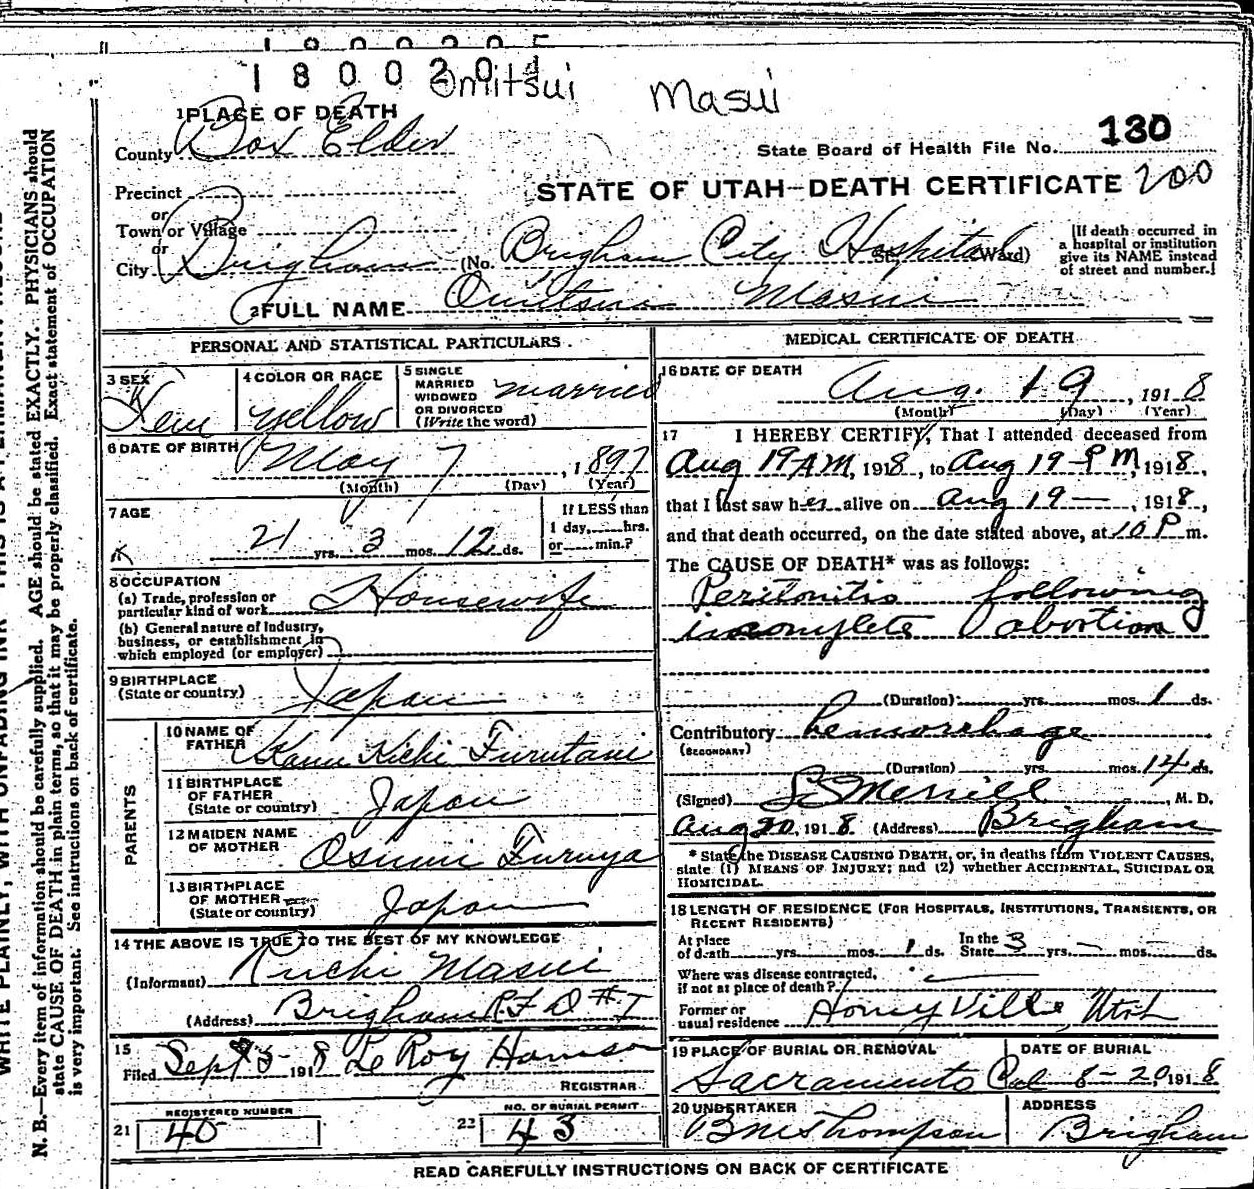 1800201
Omitsui Masui
1 PLACE OF DEATH
County Box Elder
State Board of Health File No. 130
Precinct
STATE OF UTAH—DEATH CERTIFICATE 200
or
Town or Village
or
City Brigham (No. Brigham City Hospital St. Ward)
[If death occurred in
a hospital or institution
give its NAME instead
of street and number.]
2 FULL NAME Omitsui Masui
PERSONAL AND STATISTICAL PARTICULARS
3 SEX Fem
4 COLOR OR RACE yellow
5 SINGLE
MARRIED
WIDOWED
OR DIVORCED
(Write the word) married
6 DATE OF BIRTH May 7, 1897
(Month) (Day) (Year)
7 AGE
21 yrs. 3 mos. 12 ds.
If LESS than
1 day, hrs.
or min.?
8 OCCUPATION
(a) Trade, profession or
particular kind of work Housewife
(b) General nature of Industry,
business, or establishment in
which employed (or employer)
9 BIRTHPLACE
(State or country) Japan
PARENTS
10 NAME OF
FATHER Kichi Furutani
11 BIRTHPLACE
OF FATHER
(State or country) Japan
12 MAIDEN NAME
OF MOTHER Osumi Furuya
13 BIRTHPLACE
OF MOTHER
(State or country) Japan
14 THE ABOVE IS TRUE TO THE BEST OF MY KNOWLEDGE
(Informant) Kuchi Masui
(Address) Brigham R.F.D #1
15
Filed Sept 5 1918 LeRoy Hanson
REGISTRAR
21 REGISTERED NUMBER 40
22 NO. OF BURIAL PERMIT 43
MEDICAL CERTIFICATE OF DEATH
16 DATE OF DEATH
Aug. 19, 1918
(Month) (Day) (Year)
17 I HEREBY CERTIFY, That I attended deceased from
Aug 19 AM, 1918, to Aug 19 PM, 1918,
that I last saw her alive on Aug 19 —, 1918,
and that death occurred, on the date stated above, at 10 P m.
The CAUSE OF DEATH* was as follows:
Peritonitis following
incomplete abortion
(Duration) yrs. mos. 1 ds.
Contributory hemorrhage
(SECONDARY)
(Duration) yrs. mos. 14 ds.
(Signed) Merrill, M. D.
Aug 20, 1918 (Address) Brigham
* State the DISEASE CAUSING DEATH, or, in deaths from VIOLENT CAUSES,
state (1) MEANS OF INJURY; and (2) whether ACCIDENTAL, SUICIDAL OR
HOMICIDAL.
18 LENGTH OF RESIDENCE (FOR HOSPITALS, INSTITUTIONS, TRANSIENTS, OR
RECENT RESIDENTS)
At place
of death yrs. mos. 1 ds.
In the
State 3 yrs. — mos. — ds.
Where was disease contracted,
if not at place of death?
Former or
usual residence Honeyville, Utah
19 PLACE OF BURIAL OR REMOVAL
Sacramento Cal
DATE OF BURIAL
8-20, 1918
20 UNDERTAKER
Thompson
ADDRESS
Brigham
READ CAREFULLY INSTRUCTIONS ON BACK OF CERTIFICATE
N. B.—Every item of information should be carefully supplied. AGE should be stated EXACTLY. PHYSICIANS should
state CAUSE OF DEATH in plain terms, so that it may be properly classified. Exact statement of OCCUPATION
is very important. See instructions on back of certificate.